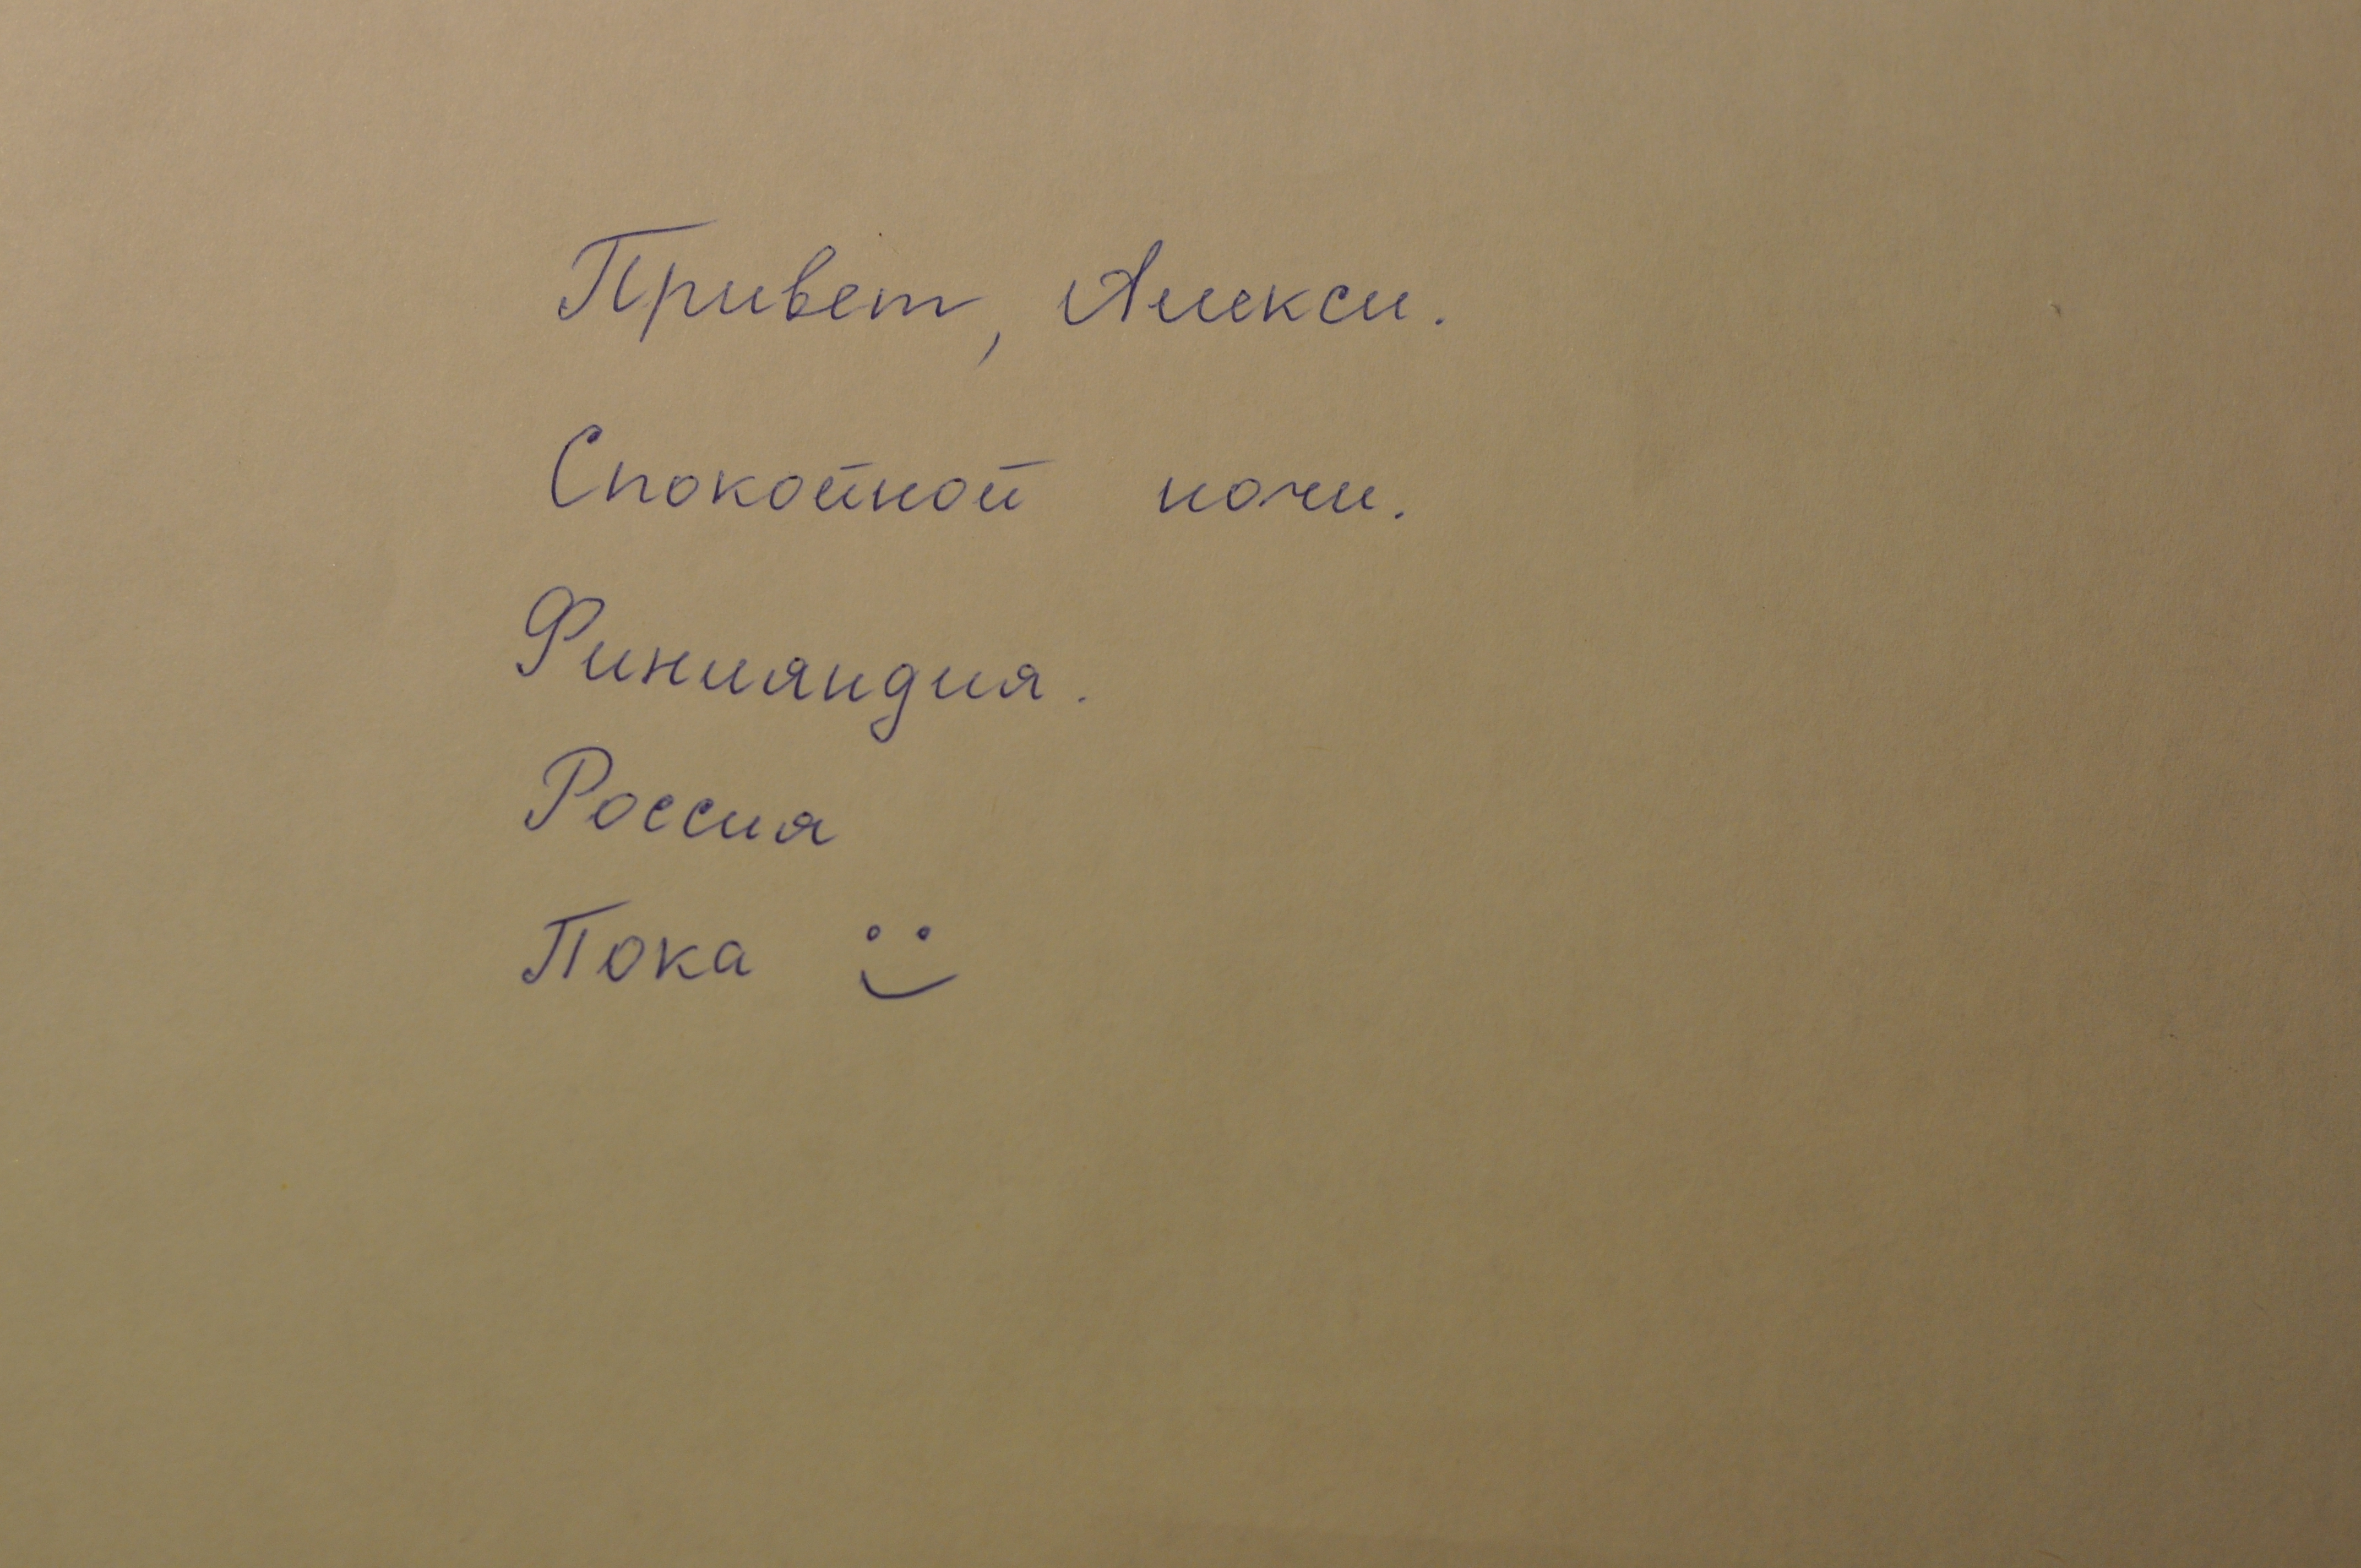 Привет, Алекси.
Спокойной ночи.
Финляндия.
Россия
Пока :)